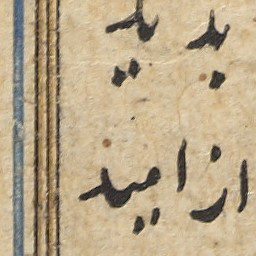 بدید
از امید